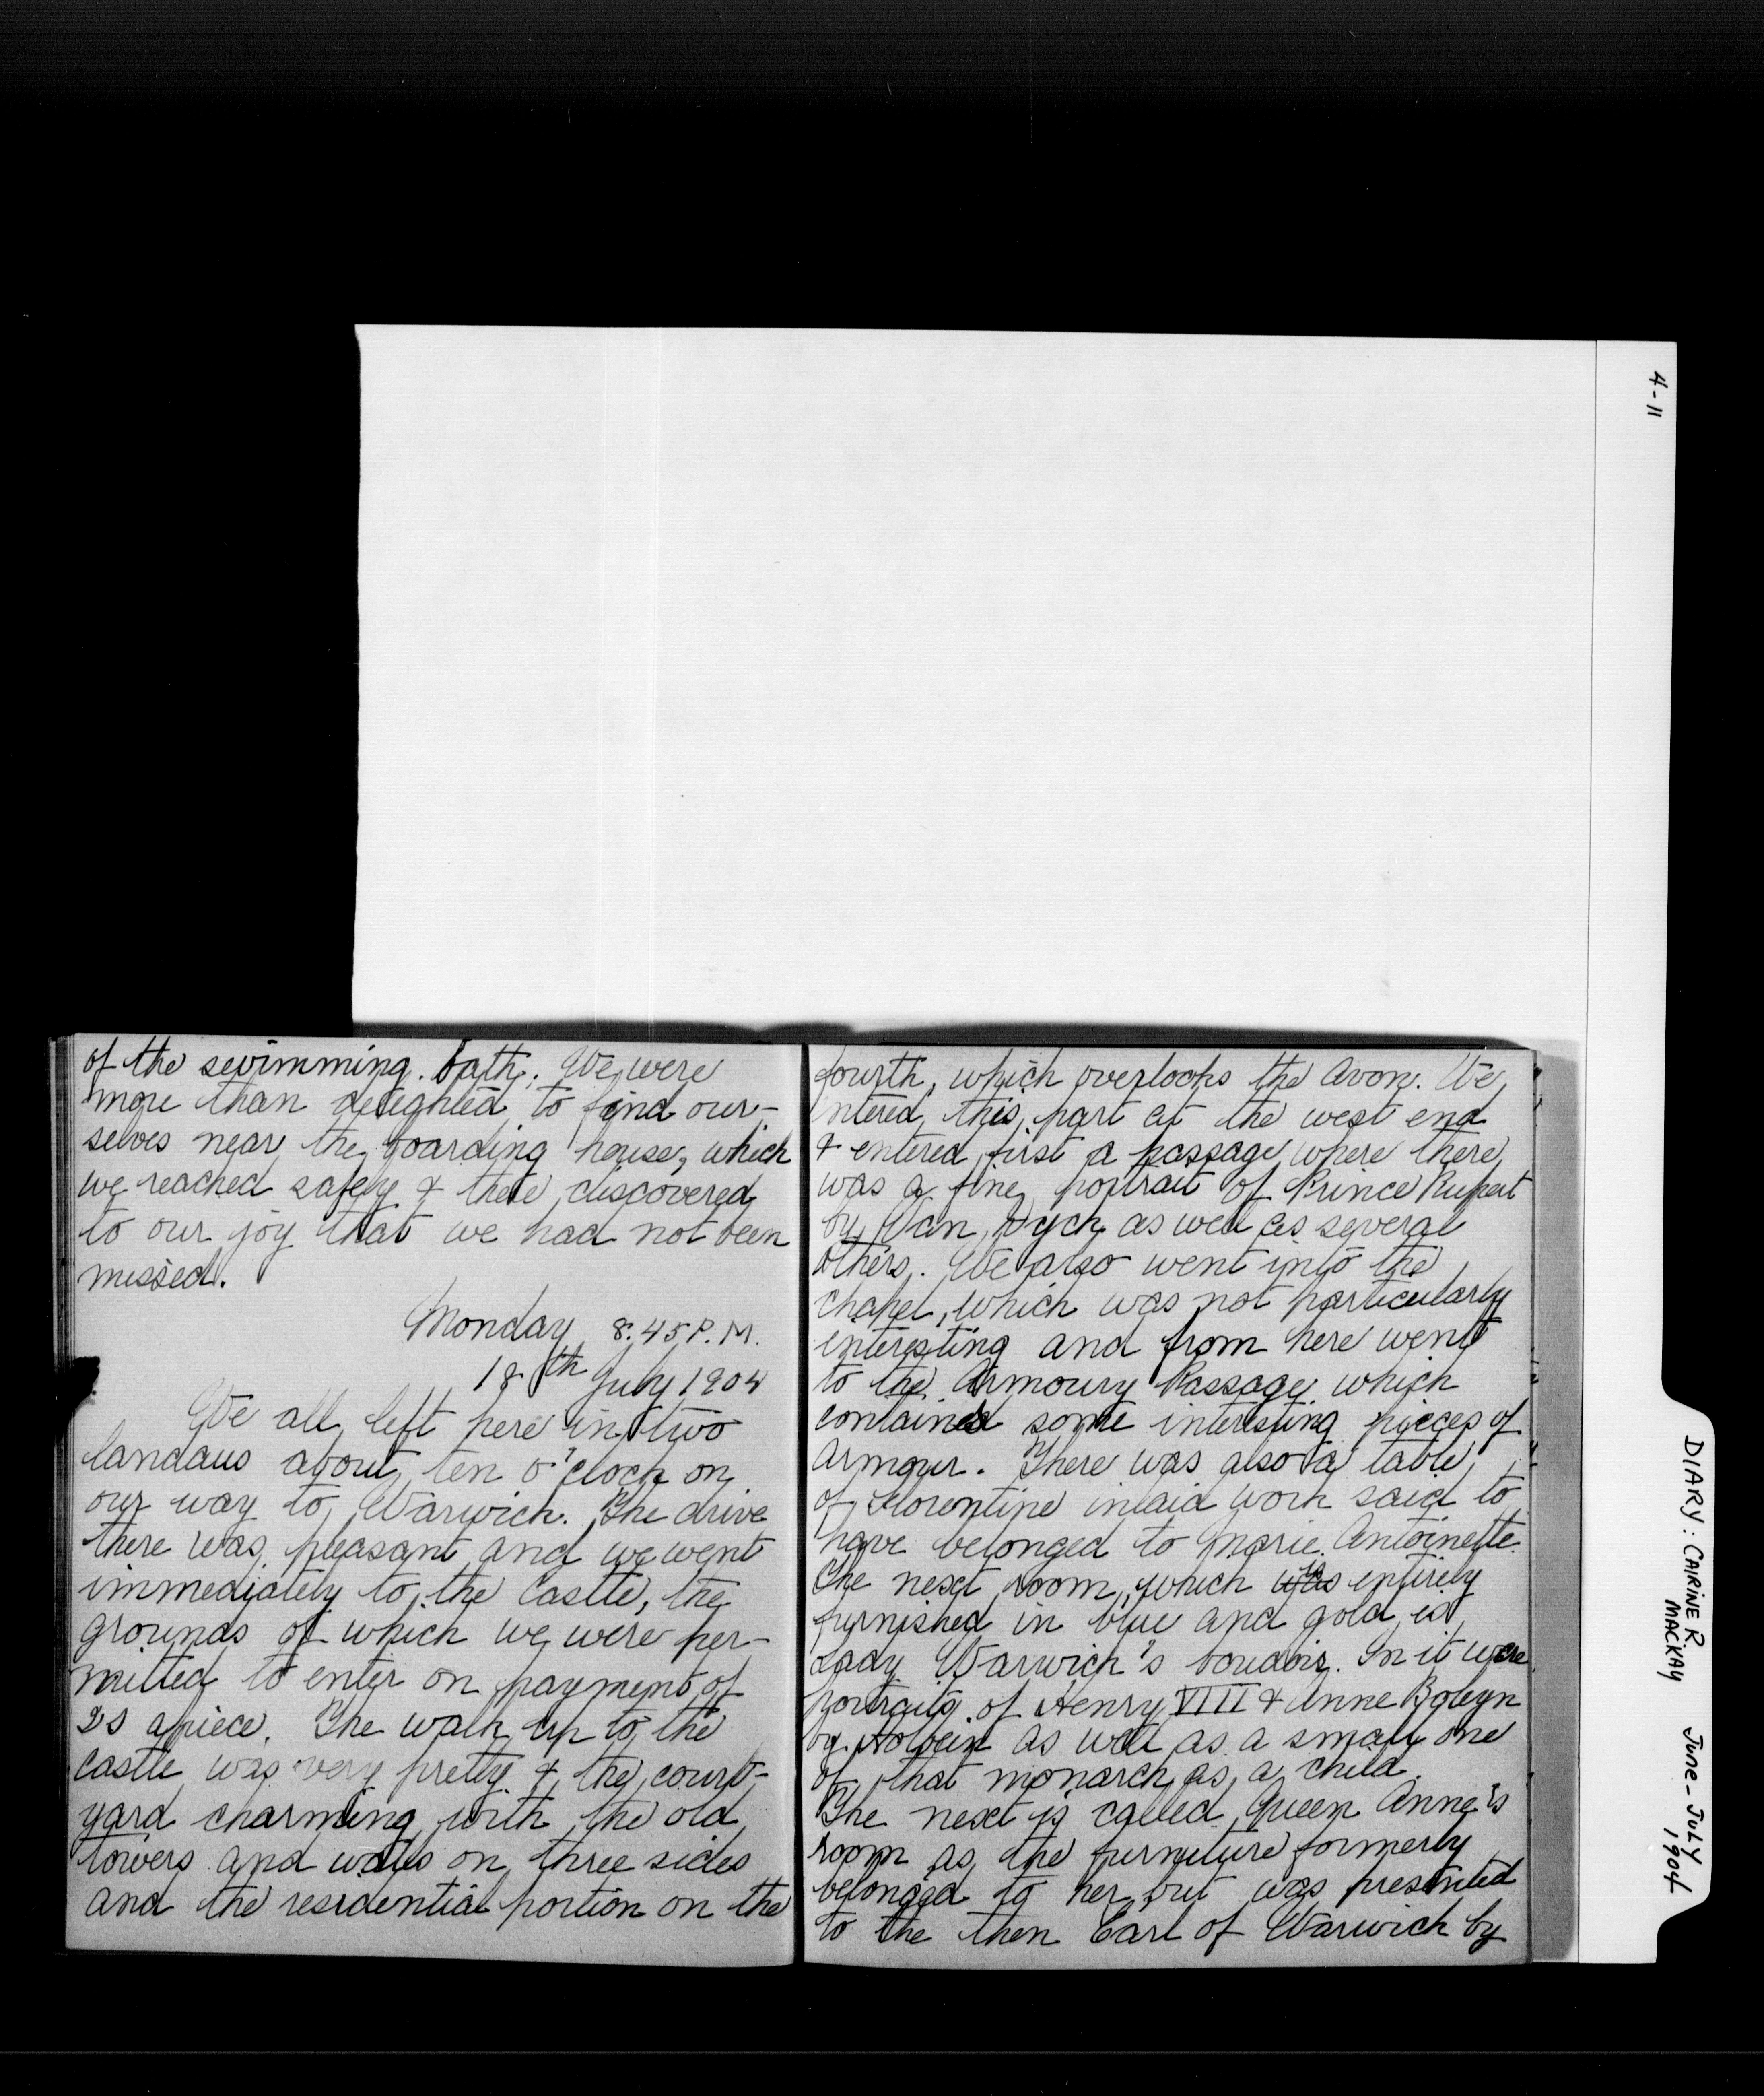 of the swimming bath. We were
more than delighted to find our-
selves near the boarding house, which
we reached safely & there discovered
to our joy that we had not been
missed.
Monday 8.45 P.M.
18th July 1904
We all left here in two
landaus about ten o'clock on
our way to Warwick. The drive
there was pleasant and we went
immediately to the Castle, the
grounds of which we were per-
mitted to enter on payment of
2s apiece. The walk up to the
castle was very pretty & the court-
yard charming with the old
towers and walls on three sides
and the residential portion on the
fourth, which overlooks the Avon. We
entered this part at the west end
& entered first a passage where there
was a fine portrait of Prince Rupert
by Van Dyck as well as several
others. We also went into the
chapel, which was not particularly
interesting and from here went
to the Armoury Passage which
contained some interesting pieces of
armour. There was also a table
of Florentine inlaid work said to
have belonged to Marie Antoinette.
The next room, which was is entirely
furnished in blue and gold is
Lady Warwick's boudoir. In it were
portraits of Henry VIII & Anne Boleyn
by Holbein as well as a small one
of that monarch as a child.
The next is called Queen Anne's
room as the furniture formerly
belonged to her but was presented
to the then Earl of Warwick by
4-11
DIARY: CAIRINE R.
MACKAY
JUNE - JULY
1904